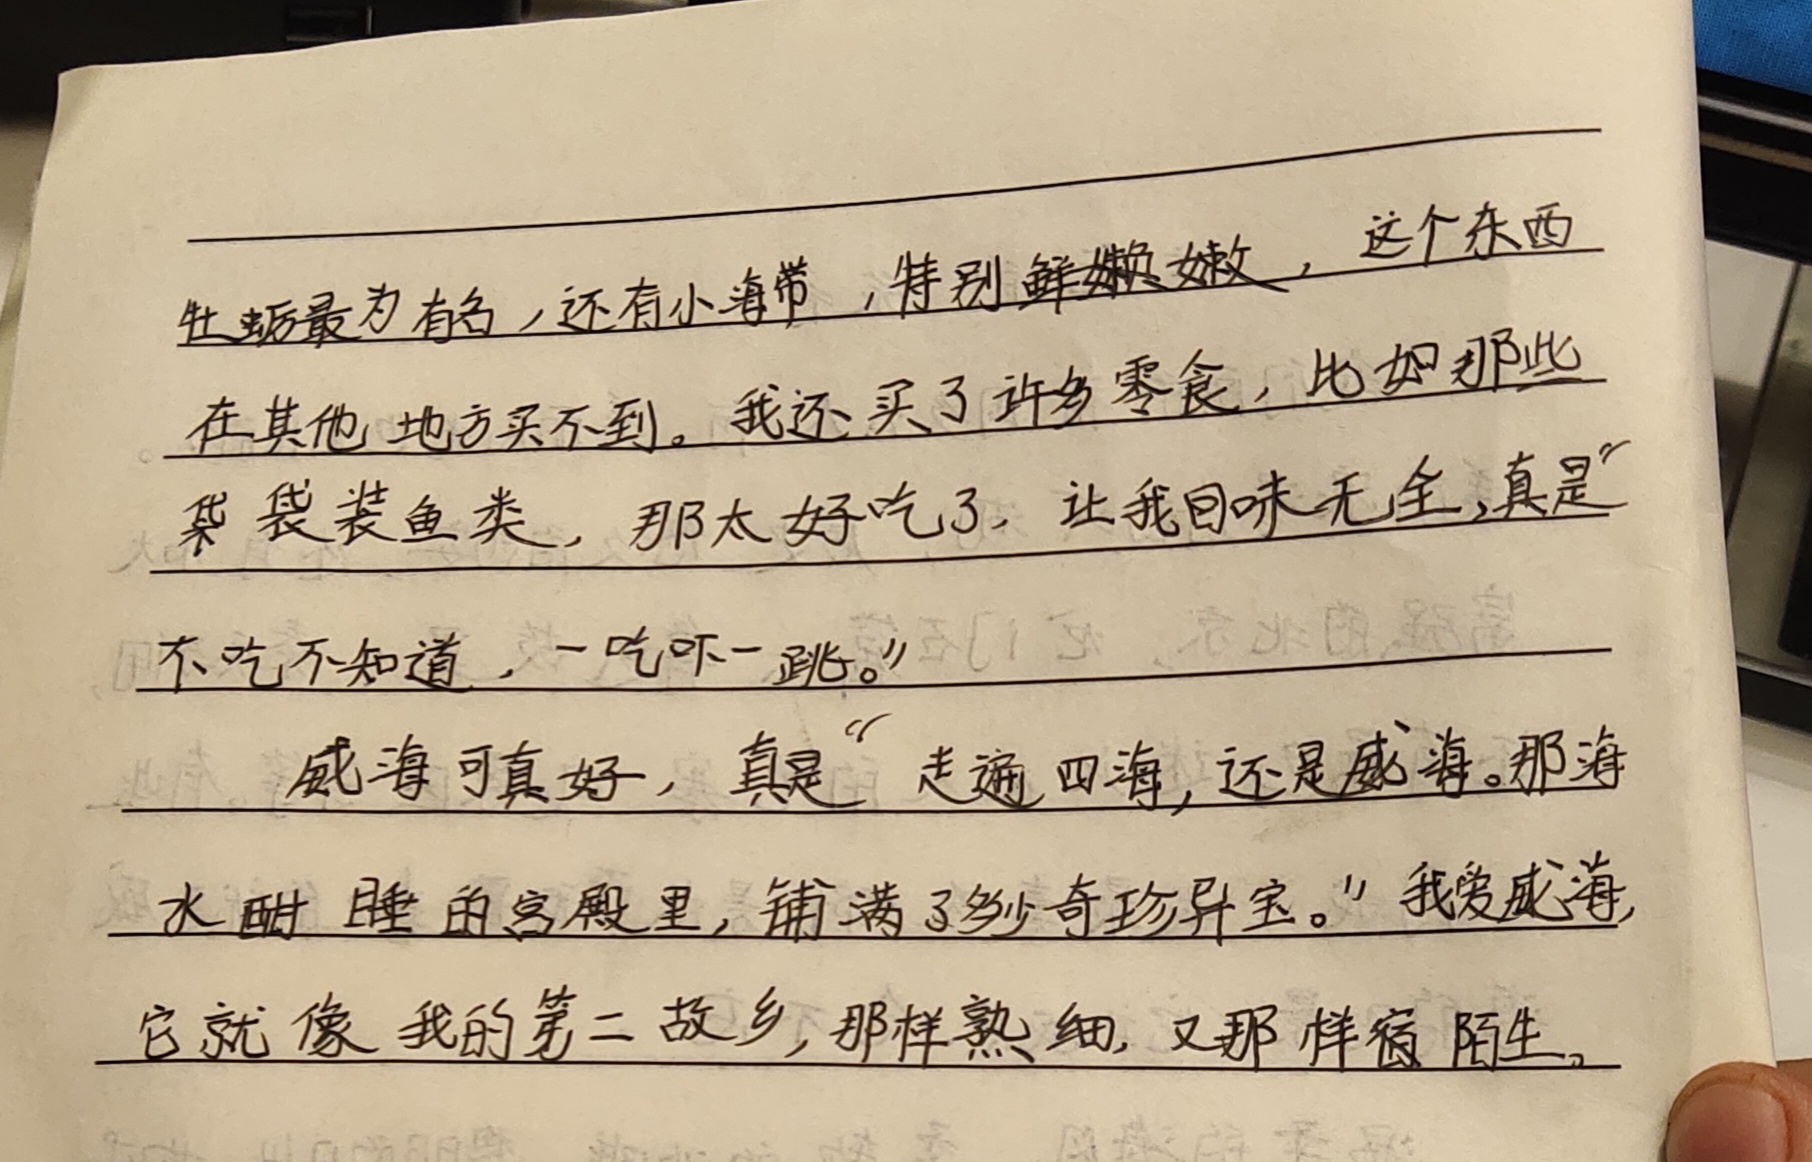 牡蛎最为有名，还有小海带，特别鲜嫩，这个东西
在其他地方买不到。我还买了许多零食，比如那些
袋袋装鱼类，那太好吃了，让我回味无全，真是“
不吃不知道，一吃吓一跳。”
威海可真好，真是“走遍四海，还是威海。那海
水酣睡的宫殿里，铺满了奇珍异宝。”我爱威海，
它就像我的第二故乡，那样熟细，又那样陌生。